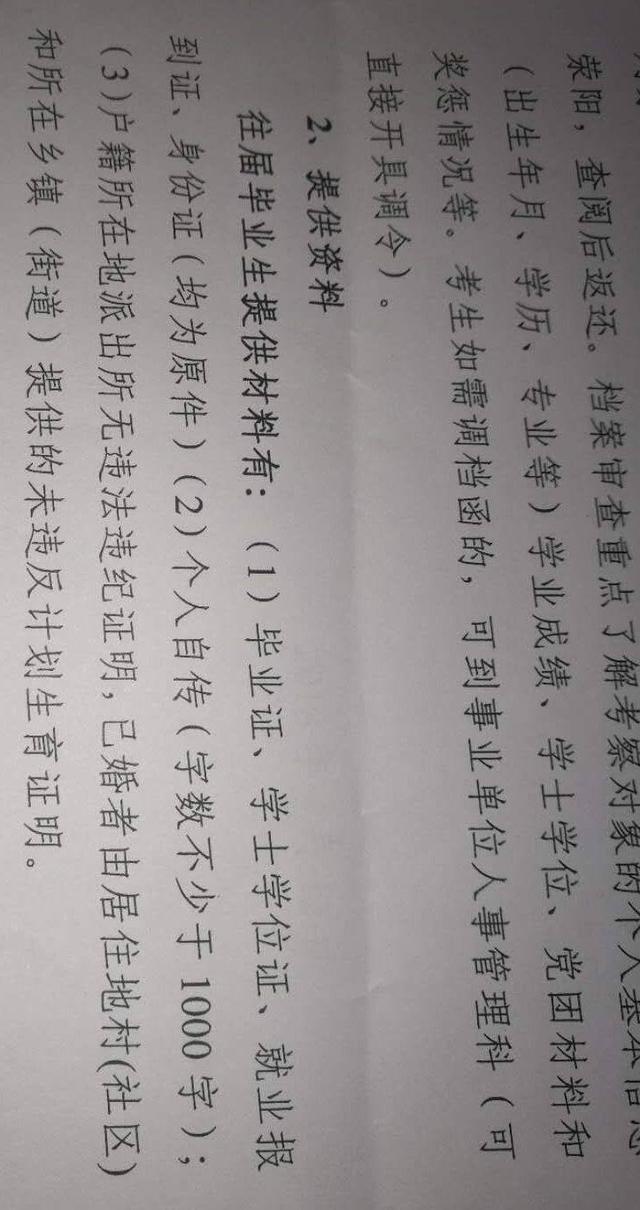 荥阳，查阅后返还。档案审查重点了解考察对象的个人基本信息
（出生年月、学历、专业等）学业成绩、学士学位、党团材料和
奖惩情况等。考生如需调档函的，可到事业单位人事管理科（可
直接开具调令）。
2、提供资料
往届毕业生提供材料有：（1）毕业证、学士学位证、就业报
到证、身份证（均为原件）（2）个人自传（字数不少于1000字）；
（3）户籍所在地派出所无违法违纪证明，已婚者由居住地村(社区)
和所在乡镇（街道）提供的未违反计划生育证明。